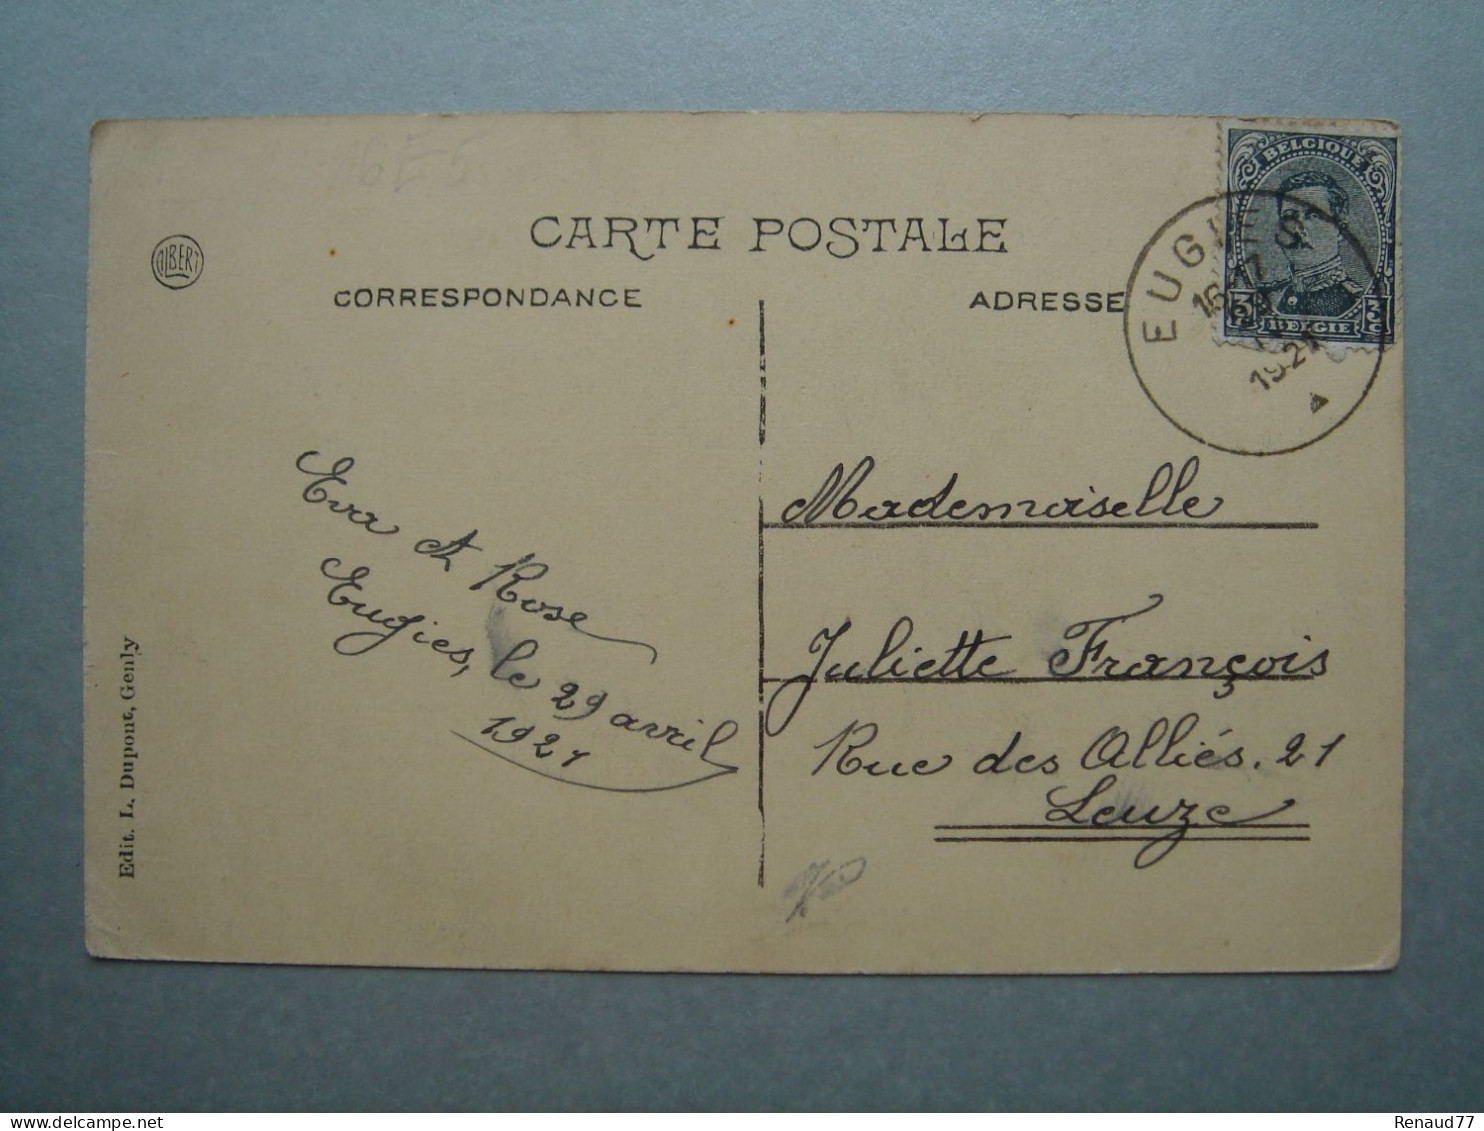 CARTE POSTALE
CORRESPONDANCE
ADRESSE
ALBERT
BELGIQUE
3c 3c
BELGIE
EUGIES
16-17
1921
Eva et Rose
Eugies, le 29 avril
1921
Mademoiselle
Juliette François
Rue des Alliés. 21
Leuze
Edit. L. Dupont, Genly
Renaud77